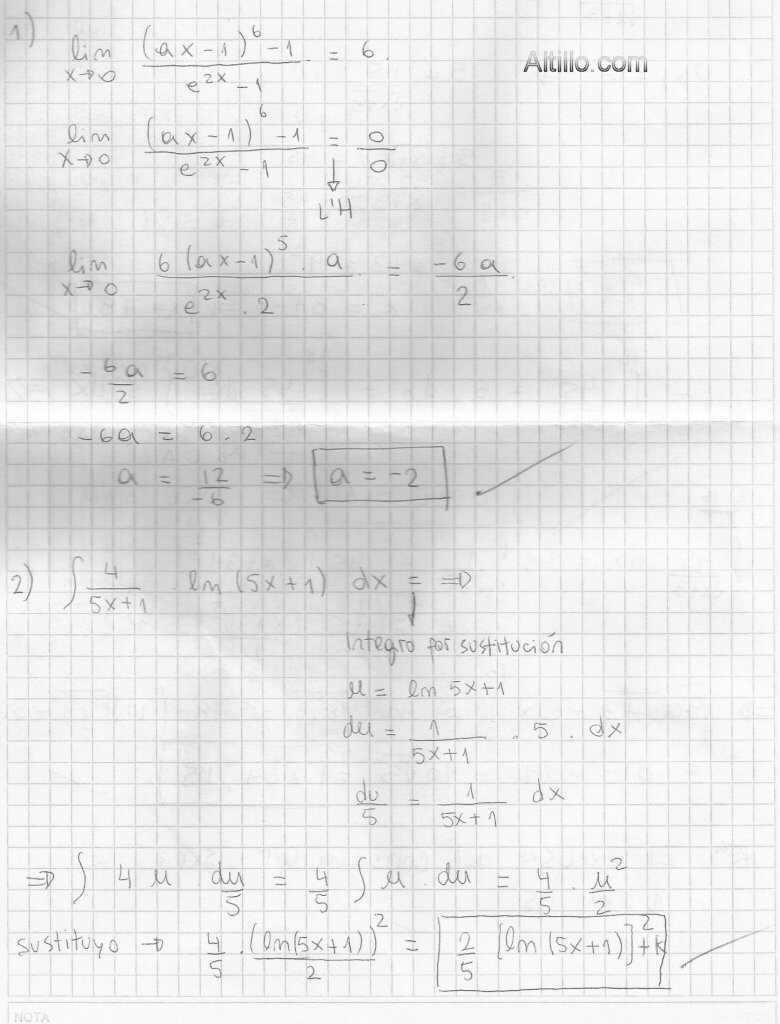 1) lim x→0 ((ax-1)^6 - 1)/(e^2x - 1) = 6.
Altillo.com
lim x→0 ((ax-1)^6 - 1)/(e^2x - 1) = 0/0
↓
L'H
lim x→0 (6(ax-1)^5 . a)/(e^2x . 2) = -6a/2.
-6a/2 = 6
-6a = 6.2
a = 12/-6 ⇒ a = -2
2) ∫ 4/(5x+1) . ln(5x+1) dx = ⇒
↓
Integro por sustitución
u = ln 5x+1
du = 1/(5x+1) . 5 . dx
du/5 = 1/(5x+1) dx
⇒ ∫ 4 u du/5 = 4/5 ∫ u . du = 4/5 . u^2/2
sustituyo → 4/5 . (ln(5x+1))^2/2 = 2/5 [ln(5x+1)]^2 + k
NOTA